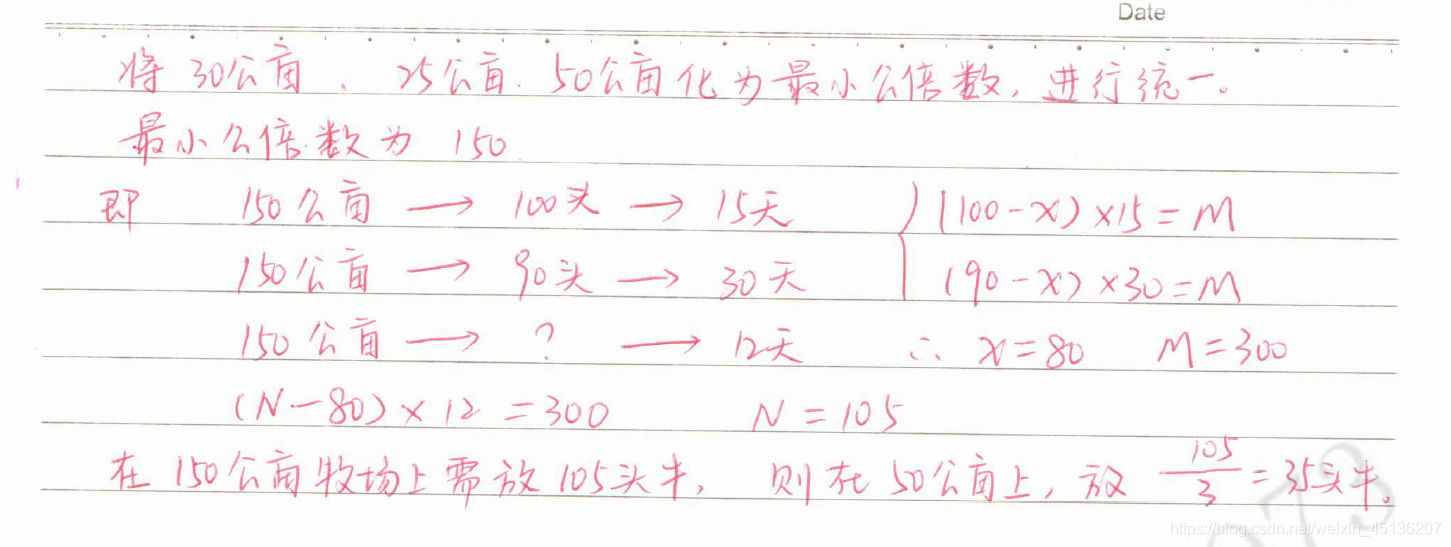 Date
将 30公亩、25公亩、50公亩化为最小公倍数，进行统一。
最小公倍数为 150
即 150公亩 → 100头 → 15天 (100-x)×15=M
150公亩 → 90头 → 30天 (90-x)×30=M
150公亩 → ? → 12天 ∴ x=80 M=300
(N-80)×12=300 N=105
在 150公亩牧场上需放105头牛， 则在50公亩上，放 105/3 =35头牛。
https://blog.csdn.net/weixin_45136207